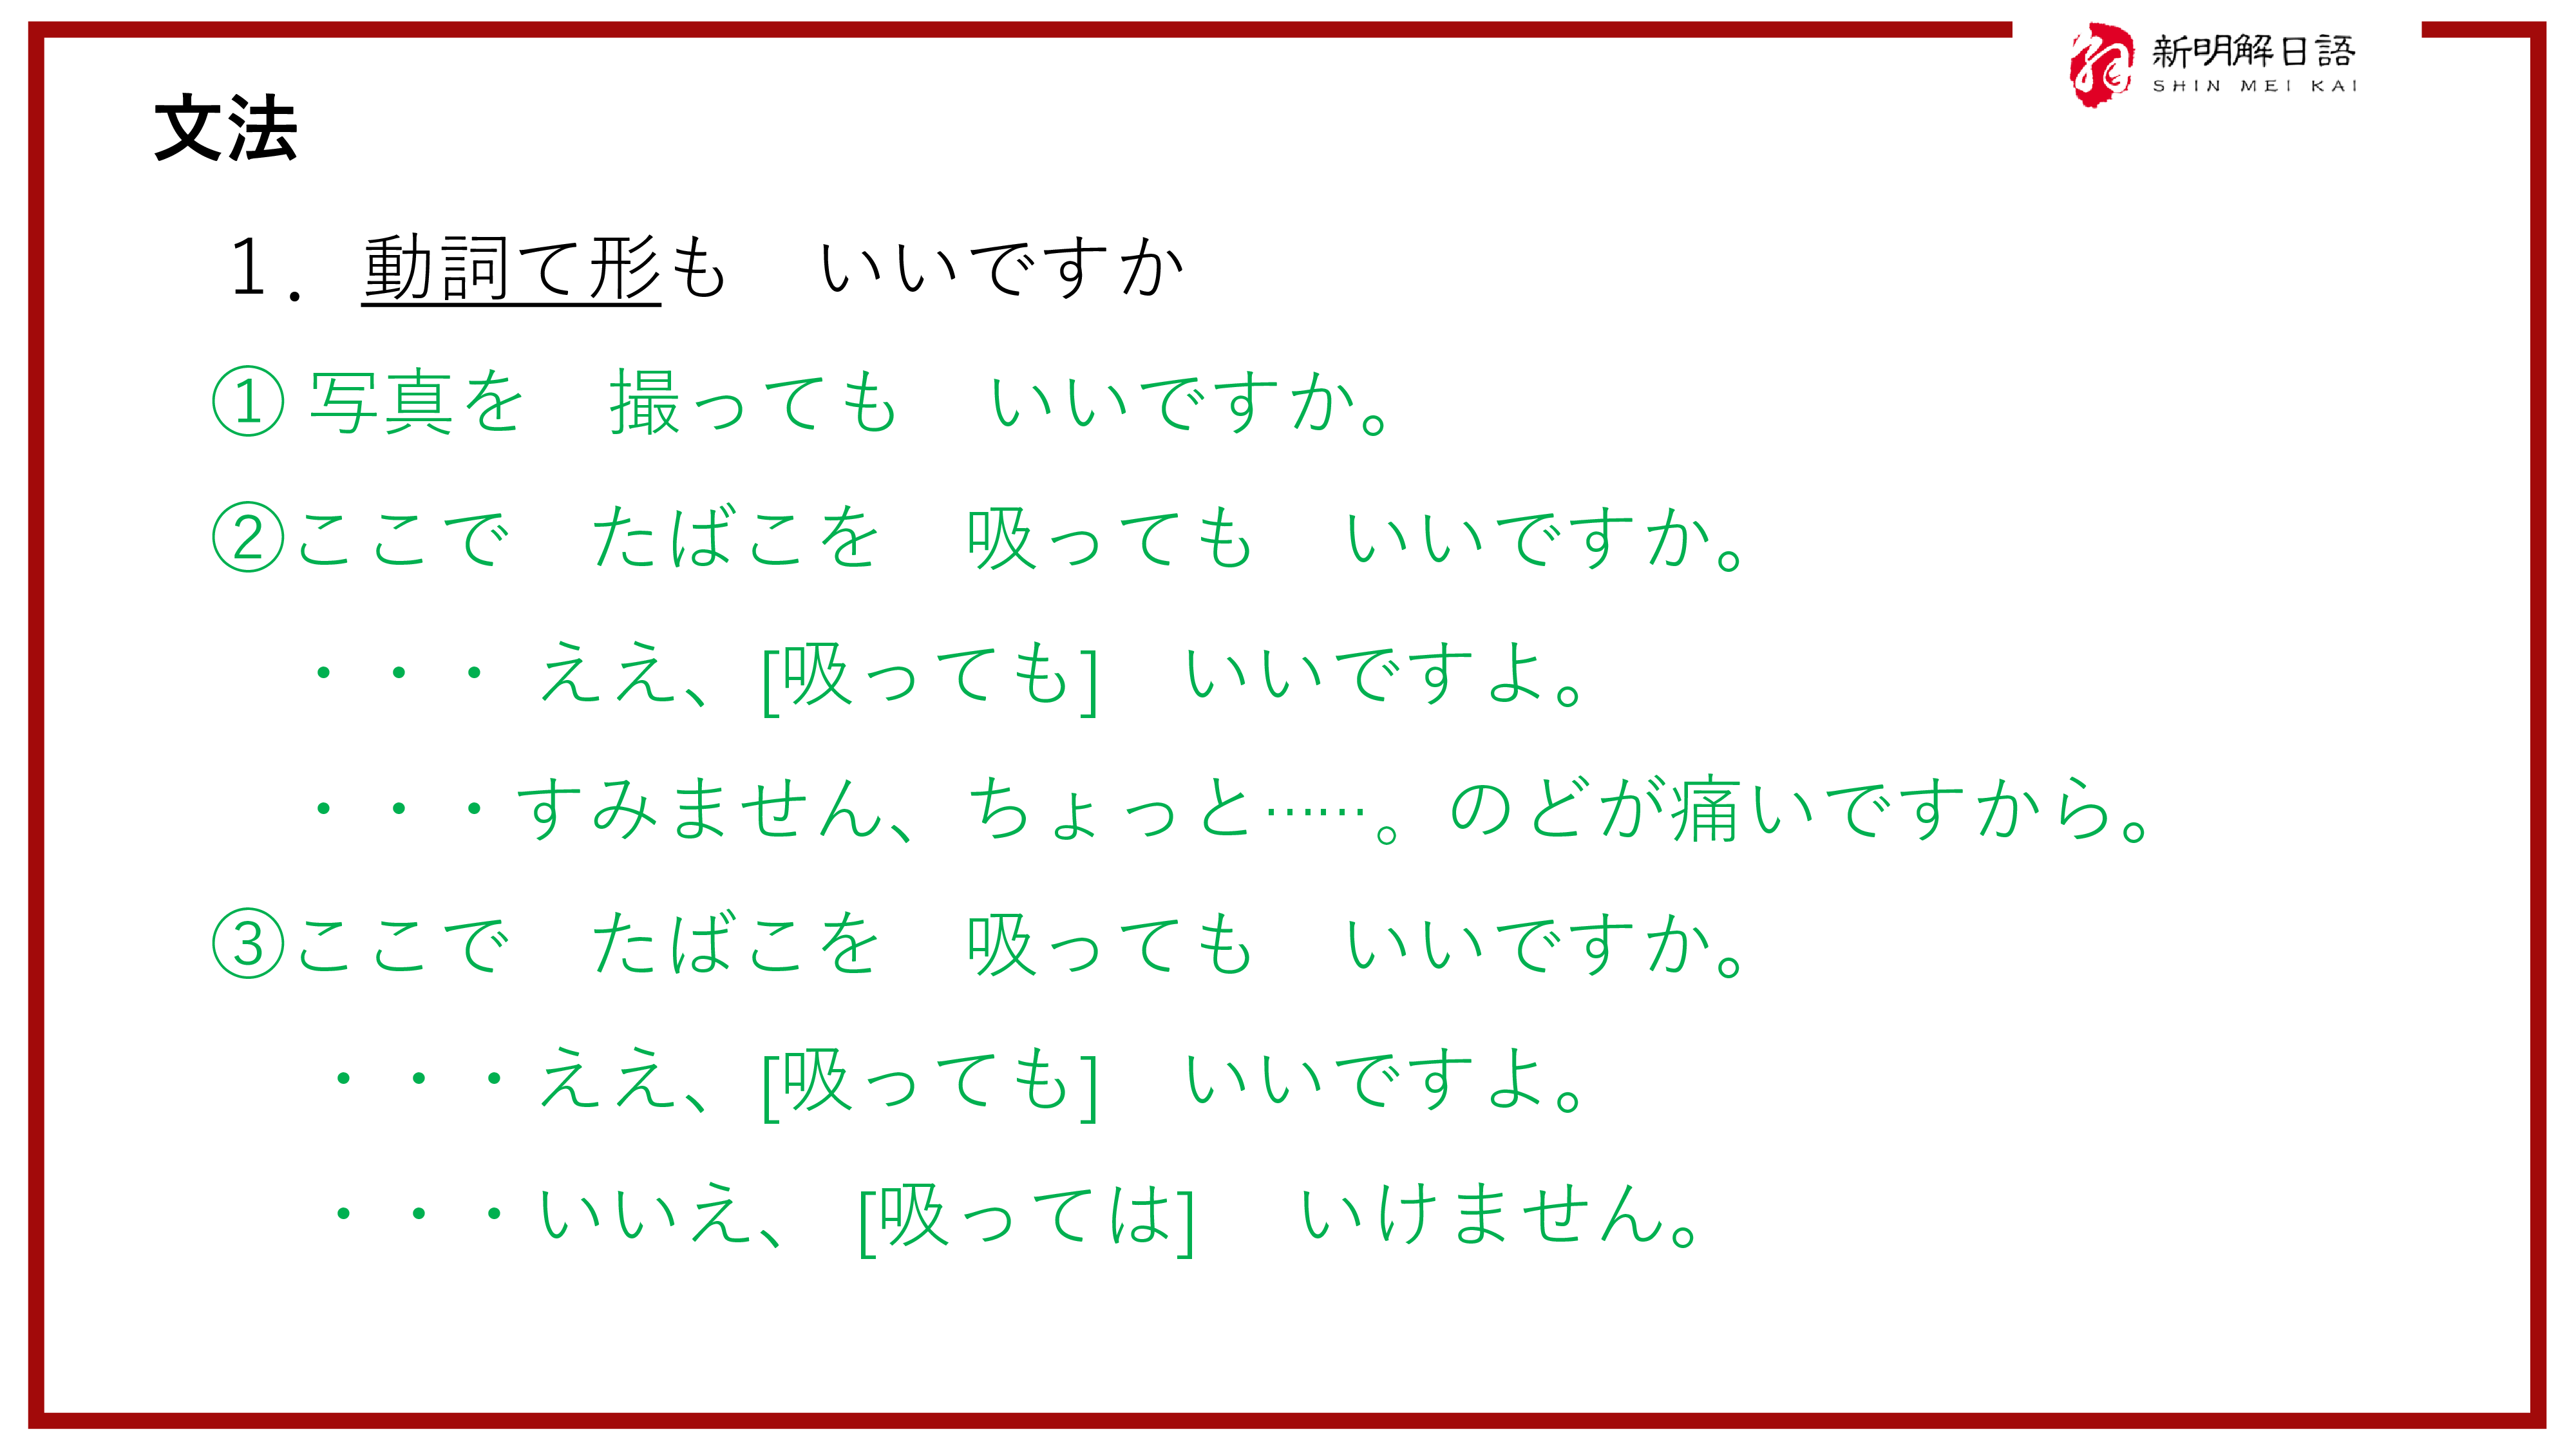 新明解日語
SHIN MEI KAI
文法
１．動詞て形も　いいですか
①写真を　撮っても　いいですか。
②ここで　たばこを　吸っても　いいですか。
・・・ええ、[吸っても]　いいですよ。
・・・すみません、ちょっと……。のどが痛いですから。
③ここで　たばこを　吸っても　いいですか。
・・・ええ、[吸っても]　いいですよ。
・・・いいえ、[吸っては]　いけません。